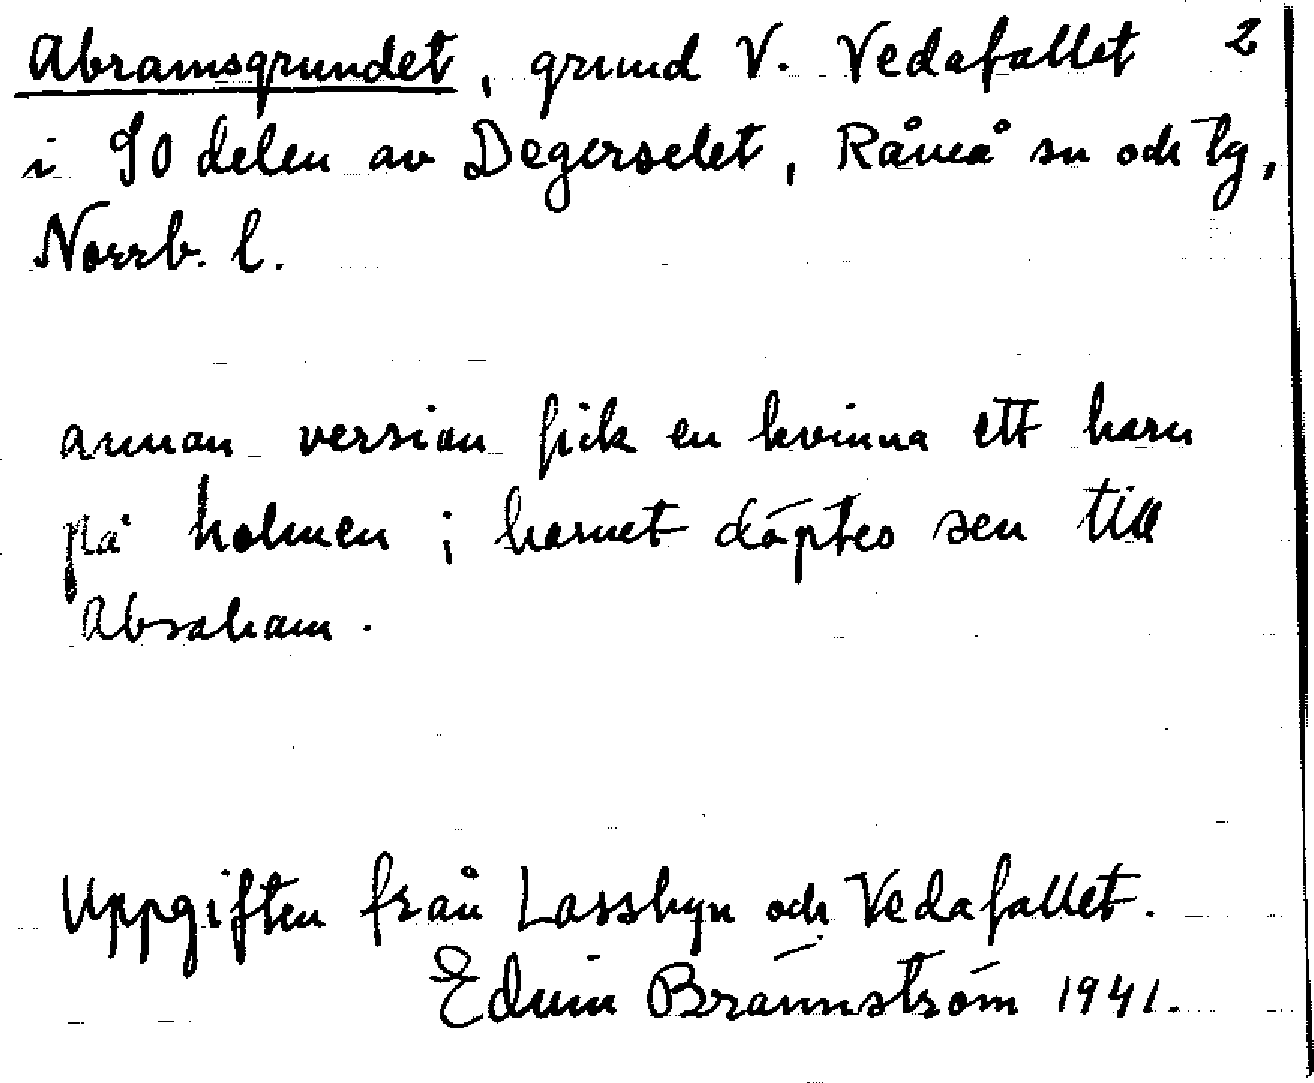 Abramsgrundet, grund V. Vedafallet 2
i SO delen av Degerselet, Råneå sn och tg,
Norrb. l.
annan version fick en kvinna ett barn
på holmen; barnet döptes sen till
Abraham.
Uppgiften från Lassbyn och Vedafallet.
Edvin Brännström 1941.